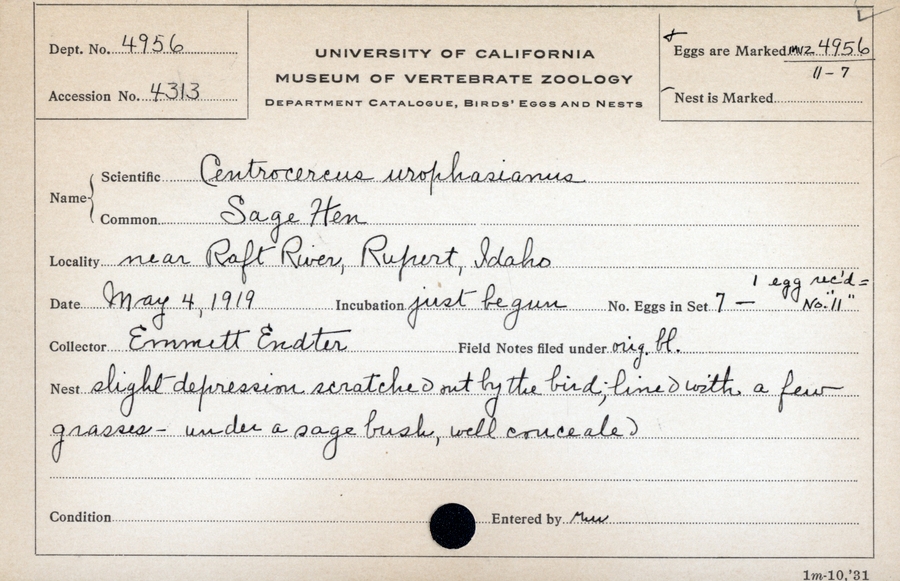 Dept. No. 4956
Accession No. 4313
UNIVERSITY OF CALIFORNIA
MUSEUM OF VERTEBRATE ZOOLOGY
DEPARTMENT CATALOGUE, BIRDS' EGGS AND NESTS
Eggs are Marked MVZ 4956
11-7
Nest is Marked
Name
Scientific Centrocercus urophasianus
Common Sage Hen
Locality near Raft River, Rupert, Idaho
1 egg rec'd =
Date May 4, 1919 Incubation just begun No. Eggs in Set 7 — No. "11"
Collector Emmett Endter Field Notes filed under orig. bl.
Nest slight depression scratched out by the bird; lined with a few
grasses - under a sage bush, well concealed
Condition Entered by
1m-10,'31